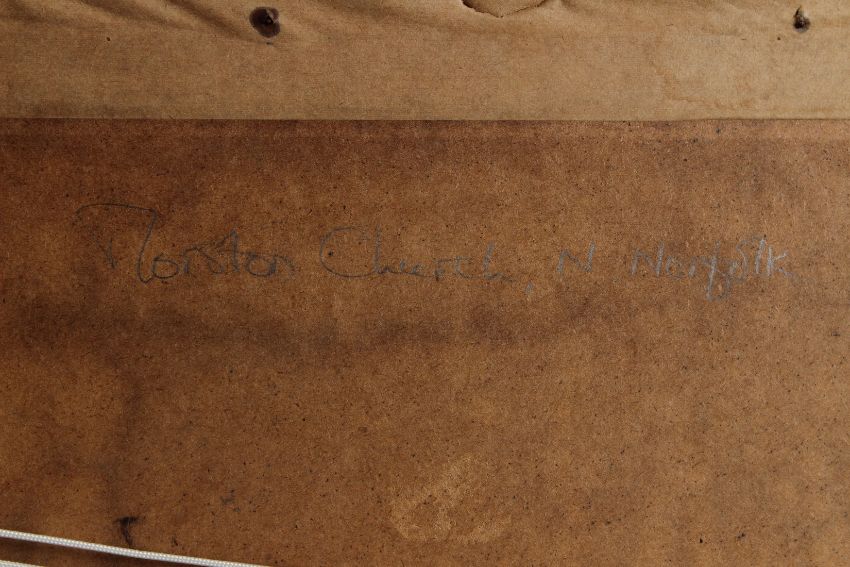 Morston Church, N. Norfolk